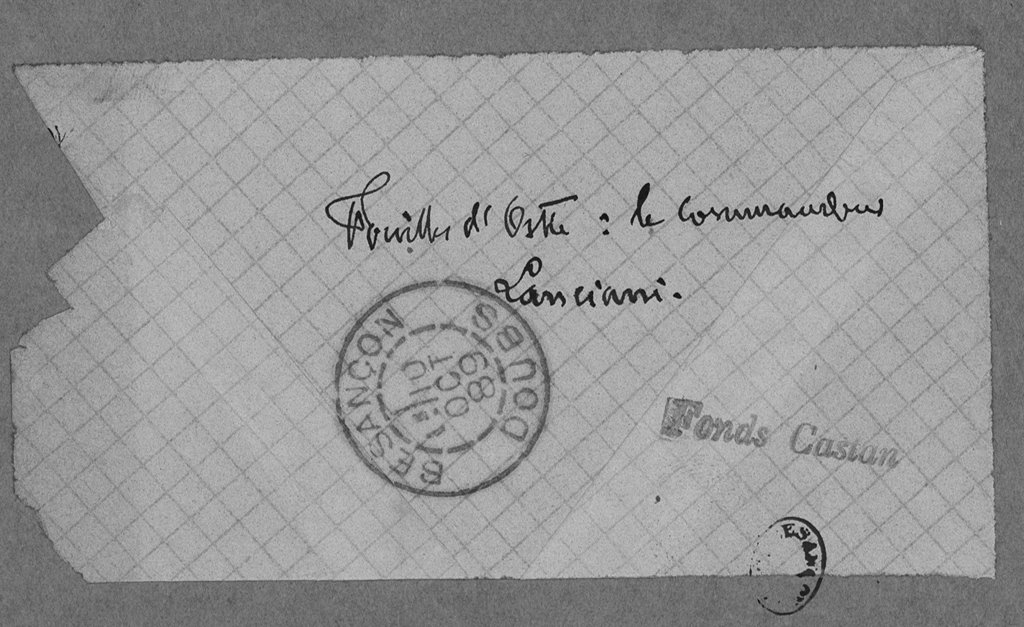 Fouilles d'Ostie : le commandeur
Lanciani.
BESANÇON
DOUBS
OCT
89
Fonds Castan